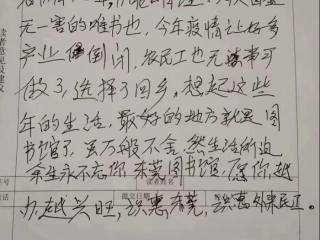 无一害的唯书也,今年疫情让好多
产业倒闭,农民工也无事可
做了,选择了回乡,想起这些
年的生活,最好的地方就是图
书馆了,虽万般不舍,然生活所迫
余生永不忘你,东莞图书馆,愿你越
办越兴旺,识惠东莞,识惠外来民工。
读者意见及建议